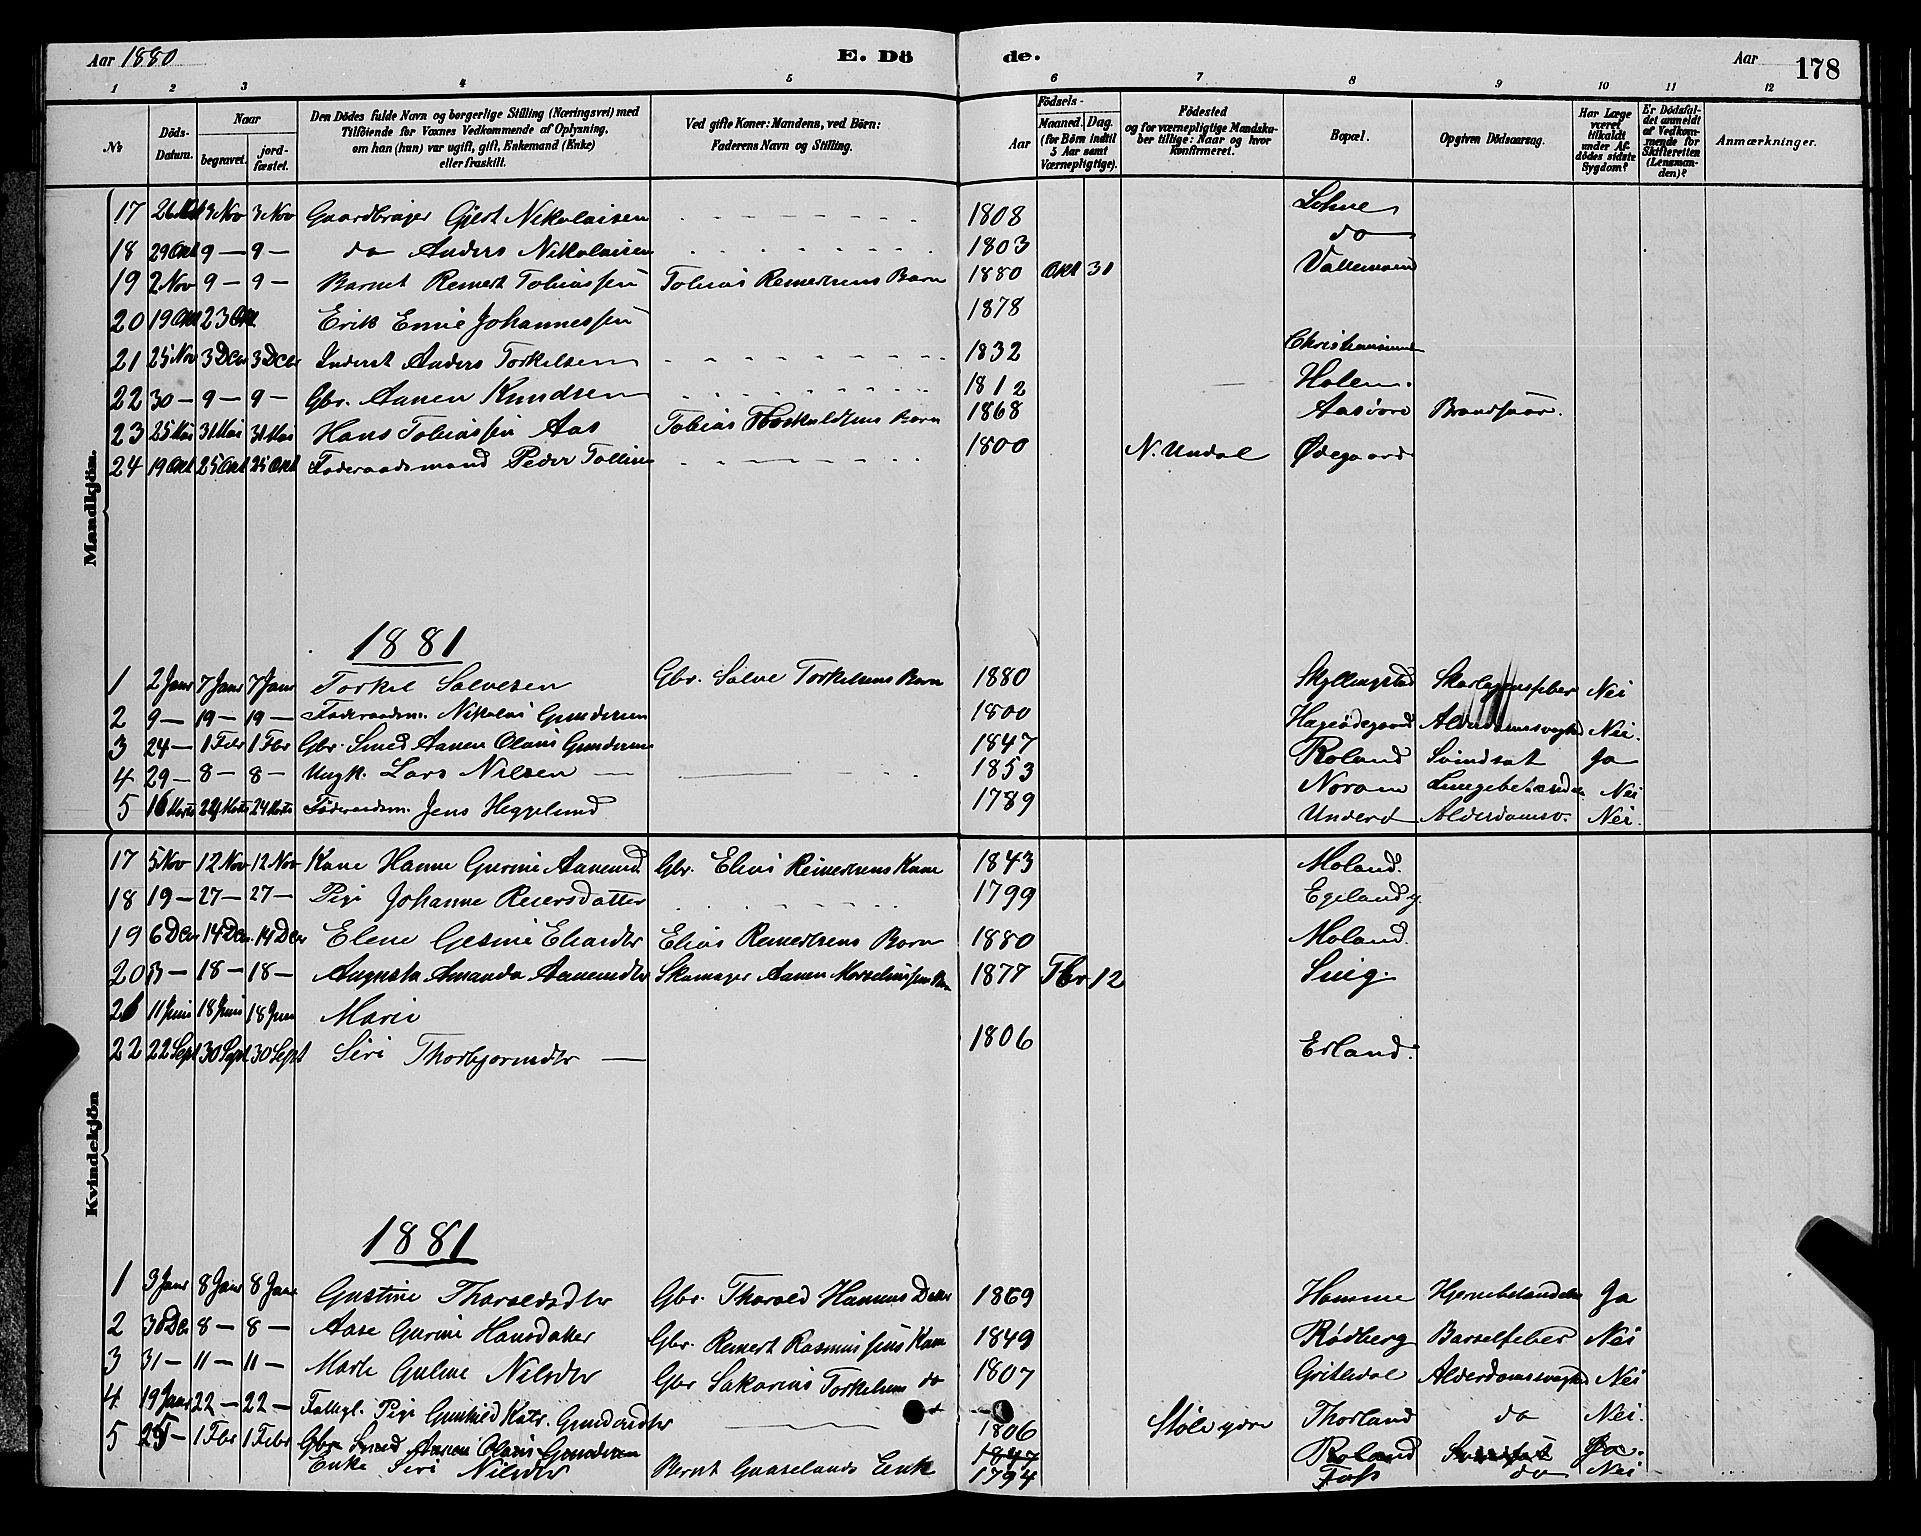 Aar 1880 E. Dö de. Aar 178
1 2 3 4 5 6 7 8 9 10 11 12
№ Döds-Datum. Naar begravet. jord-fæstet. Den Dödes fulde Navn og borgerlige Stilling (Næringsvei) med Tilföiende for Voxnes Vedkommende af Oplysning, om han (hun) var ugift, gift, Enkemand (Enke) eller fraskilt. Ved gifte Koner: Mandens, ved Börn: Faderens Navn og Stilling. Födsels- Aar Maaned. Dag. (for Börn indtil 5 Aar samt Værnepligtige). Födested og for værnepligtige Mandska-ber tillige: Naar og hvor konfirmeret. Bopæl. Opgiven Dödsaarsag. Har Læge været tilkaldt under Af-dödes sidste Sygdom? Er Dödsfal-det anmeldt af Vedkom-mende for Skifteretten (Lensman-den)? Anmærkninger.
Mandkjön.
17 26 Okt 3 Nov 3 Nov Gaardbruger Gjert Nikolaisen 1808 Lohne
18 29 Okt 9 — 9 — do Anders Nikolaisen 1803 do
19 2 Nov 9 — 9 — Barnet Reinert Tobiassen Tobias Reinertsens Barn 1880 Okt 31
20 19 Okt 23 Okt Erik Emie Johannessen 1878
21 25 Nov 3 Dcbr 3 Dcbr Inderst Anders Torkelsen 1832 Christiansund
22 30 — 9 — 9 — Gbr. Aanen Knudsen 1812 Holen.
23 25 Mai 31 Mai 31 Mai Hans Tobiassen Aas Tobias Barn 1868 Brandsaar.
24 19 Okt 25 Okt 25 Okt Föderaadsmand Peder 1800 N. Undal Ødegaard
1881
1 2 Janr 7 Janr 7 Janr Torkel Salvesen Gbr. Salve Torkelsens Barn 1880 Skyllingstad Skarlagensfeber Nei
2 9 — 19 — 19 — Föderaadsm. Nikolai Gundersen 1800 Hageödegaard Alderdomssvaghed Nei.
3 24 — 1 Febr 1 Fbr Gbr. Smed Aanen Olaus Gundersen 1847 Roland Svindsot Ja
4 29 — 8 — 8 — Ungk. Lars Nilsen — 1853 Noraa Lungebetændelse Nei
5 16 Marts 24 Marts 24 Marts Föderaadsm. Jens Heggelund 1789 Underö Alderdomsv. Nei.
Kvindekjön
17 5 Nov 12 Nov 12 Nov Kone Hanne Gurine Aanensd. Gbr. Elias Reinertsens Kone 1843 Moland.
18 19 — 27 — 27 — Pige Johanne Reiersdatter 1799 Egeland y.
19 6 Dcbr 14 Dcbr 14 Dcbr Elene Gesine Eliasdtr Elias Reinertsens Barn 1880 Moland.
20 13 — 18 — 18 — Augusta Amanda Aanensdtr Skomager Aanen Marselinssens Barn 1877 Fbr 12
21 11 Juni 18 Juni 18 Juni Marie
22 22 Sept 30 Sept 30 Sept Siri Thorbjornsdtr — 1806 Erland.
1881
1 3 Janr 8 Janr 8 Janr Gustine Thoraldsdtr Gbr. Thorald Hansens Datter 1869 Homme Hjernebetændelse Ja
2 30 Dcbr 8 — 8 — Aase Gurine Hansdatter Gbr. Reinert Rasmussens Kone 1849 Rödberg Barselfeber Nei
3 31 — 11 — 11 — Marte Guline Nilsdtr Gbr Sakarias Torkelsens do 1807 Alderdomssvaghed Nei
4 19 Janr 22 — 22 — Pige Gunhild Katr. Gundersdtr 1806 Stöle ydre Thorland do Nei.
5 25 — 1 Fbr 1 Febr Gbr Smed Aanen Olaus Gundersen 1847 Roland Svindsot Ja.
Enke Siri Nilsdtr Bernt Gaaselands Enke 1794 Foss do Nei